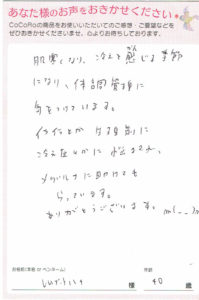 あなた様のお声をおきかせください
CoCoRoの商品をお使いいただいてのご感想・ご要望などを
ぜひおきかせくださいませ。心よりお待ちしております。
肌寒くなり、冷えを感じる季節
になり、体調管理に
気をつけています。
冷え
メグルナに助けても
らっています。
ありがとうございます。m(__)m
お名前(本名 or ペンネーム)
年齢
様
40
歳